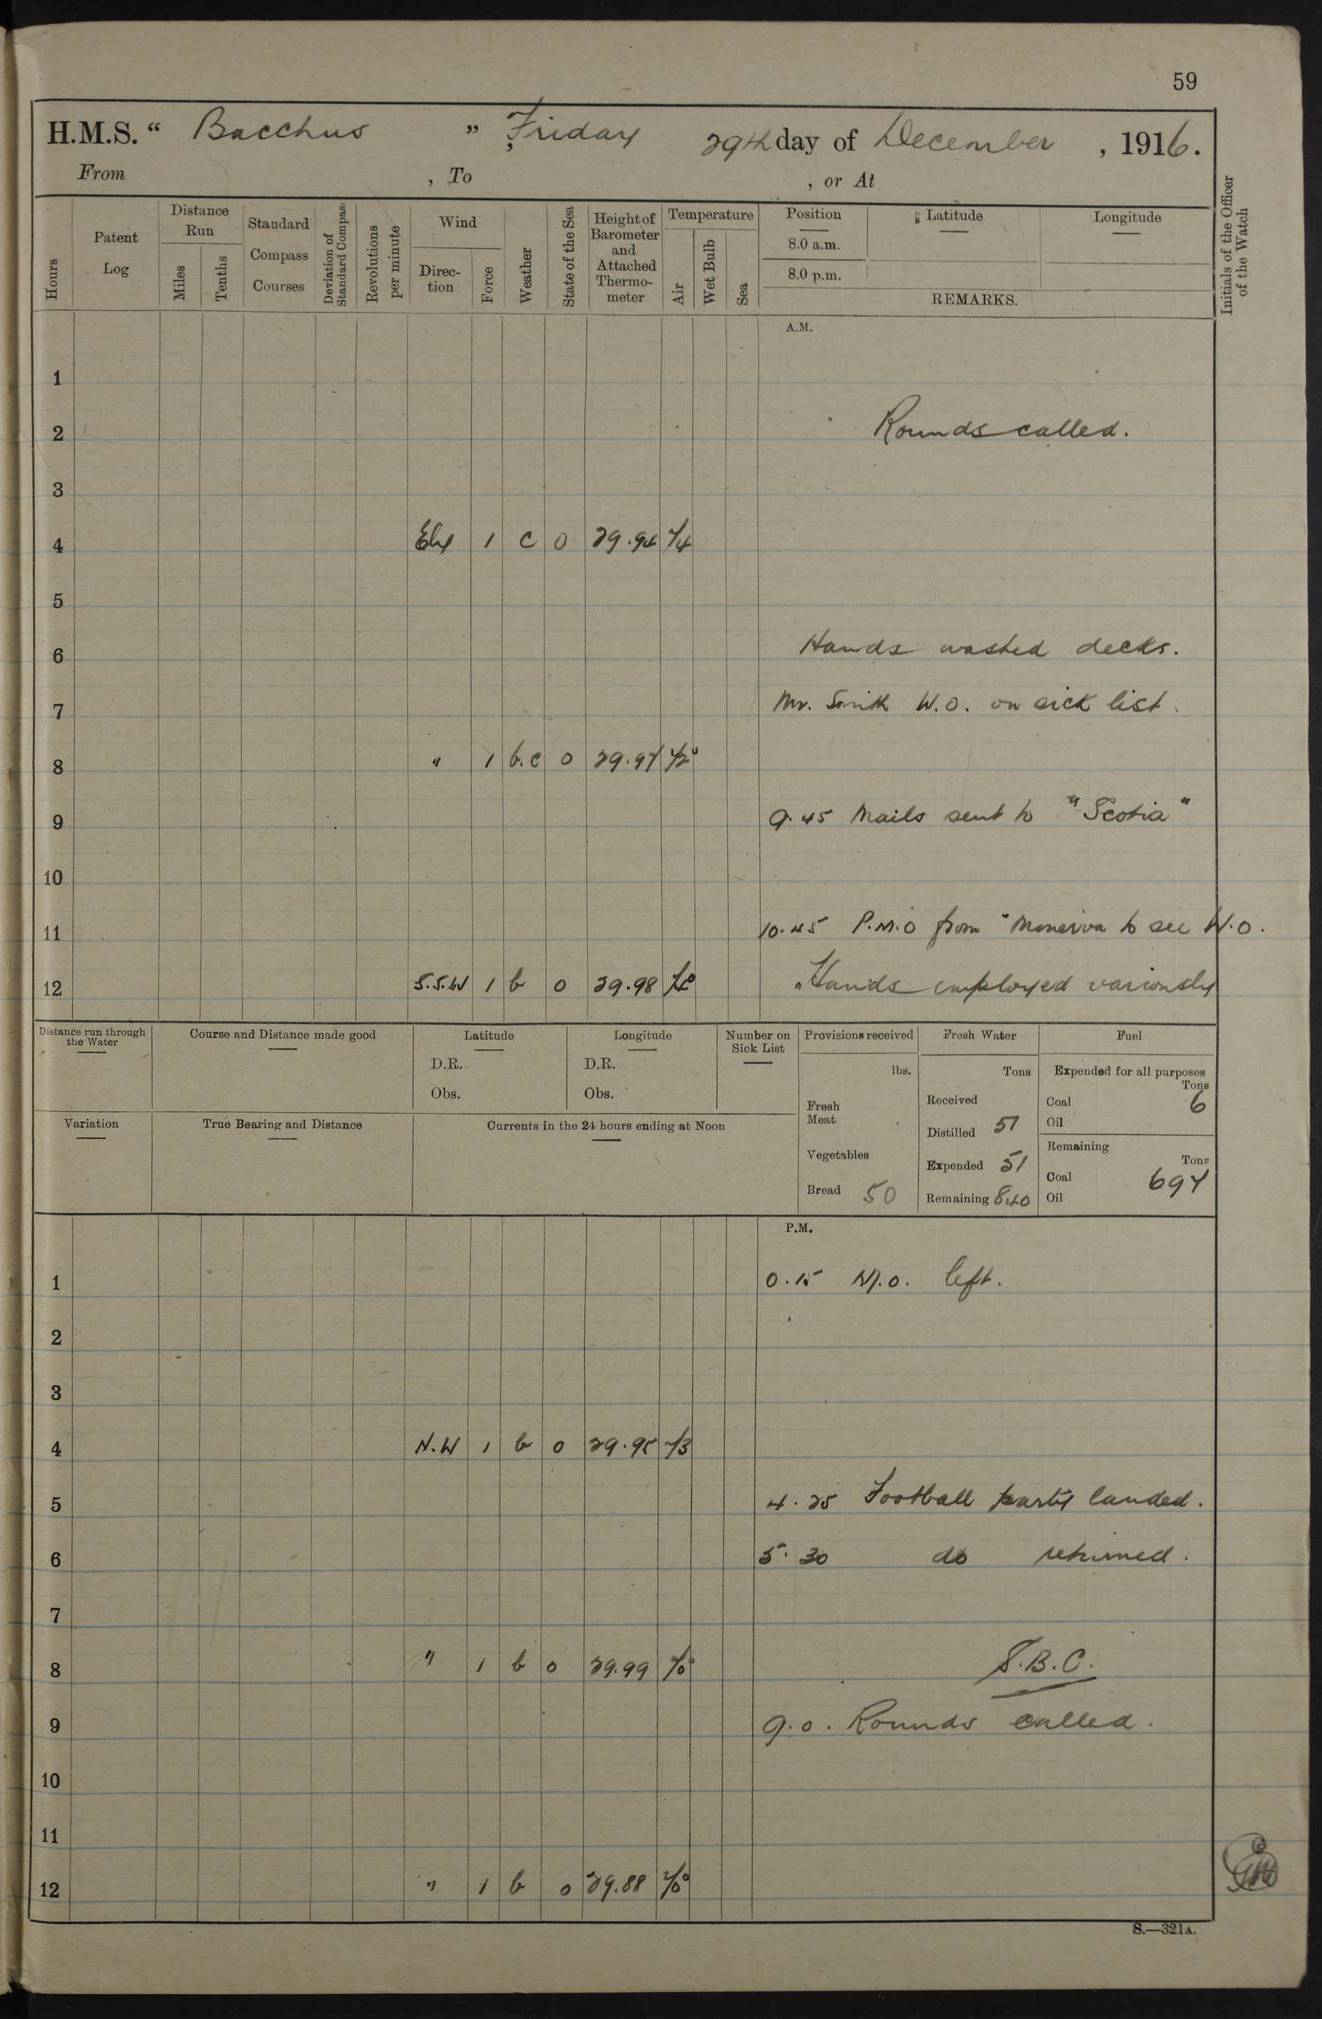 59
H.M.S. “ Bacchus ” Friday 29th day of December , 1916.
From , To , or At
Hours
Patent Log
Distance Run
Miles
Tenths
Standard Compass Courses
Deviation of Standard Compass
Revolutions per minute
Wind
Direction
Force
Weather
State of the Sea
Height of Barometer and Attached Thermometer
Temperature
Air
Wet Bulb
Sea
Position Latitude Longitude
8.0 a.m.
8.0 p.m.
REMARKS.
Initials of the Officer of the Watch
A.M.
1
2 Rounds called.
3
4 Ely 1 c 0 29.94 74
5
6 Hands washed decks.
7 Mr. Smith W.O. on sick list.
8 " 1 b.c 0 29.97 72°
9 9.45 Mails sent to "Scotia"
10
11 10.45 P.M.O from "Minerva to see W.O.
12 S.S.W 1 b 0 29.98 Hands employed variously
Distance run through the Water
Course and Distance made good
Latitude
D.R.
Obs.
Longitude
D.R.
Obs.
Number on Sick List
Provisions received
lbs.
Fresh Meat
Vegetables
Bread 50
Fresh Water
Tons
Received
Distilled 51
Expended 51
Remaining 840
Fuel
Expended for all purposes
Tons
Coal 6
Oil
Remaining
Tons
Coal 697
Oil
Variation
True Bearing and Distance
Currents in the 24 hours ending at Noon
P.M.
1 0.15 M.O. left.
2
3
4 N.W 1 b 0 29.95 73
5 4.25 Football party landed.
6 5.30 do returned.
7
8 " 1 b 0 29.99 70° S.B.C.
9 9.0. Rounds called.
10
11
12 " 1 b 0 29.88 70°
S.—321A.